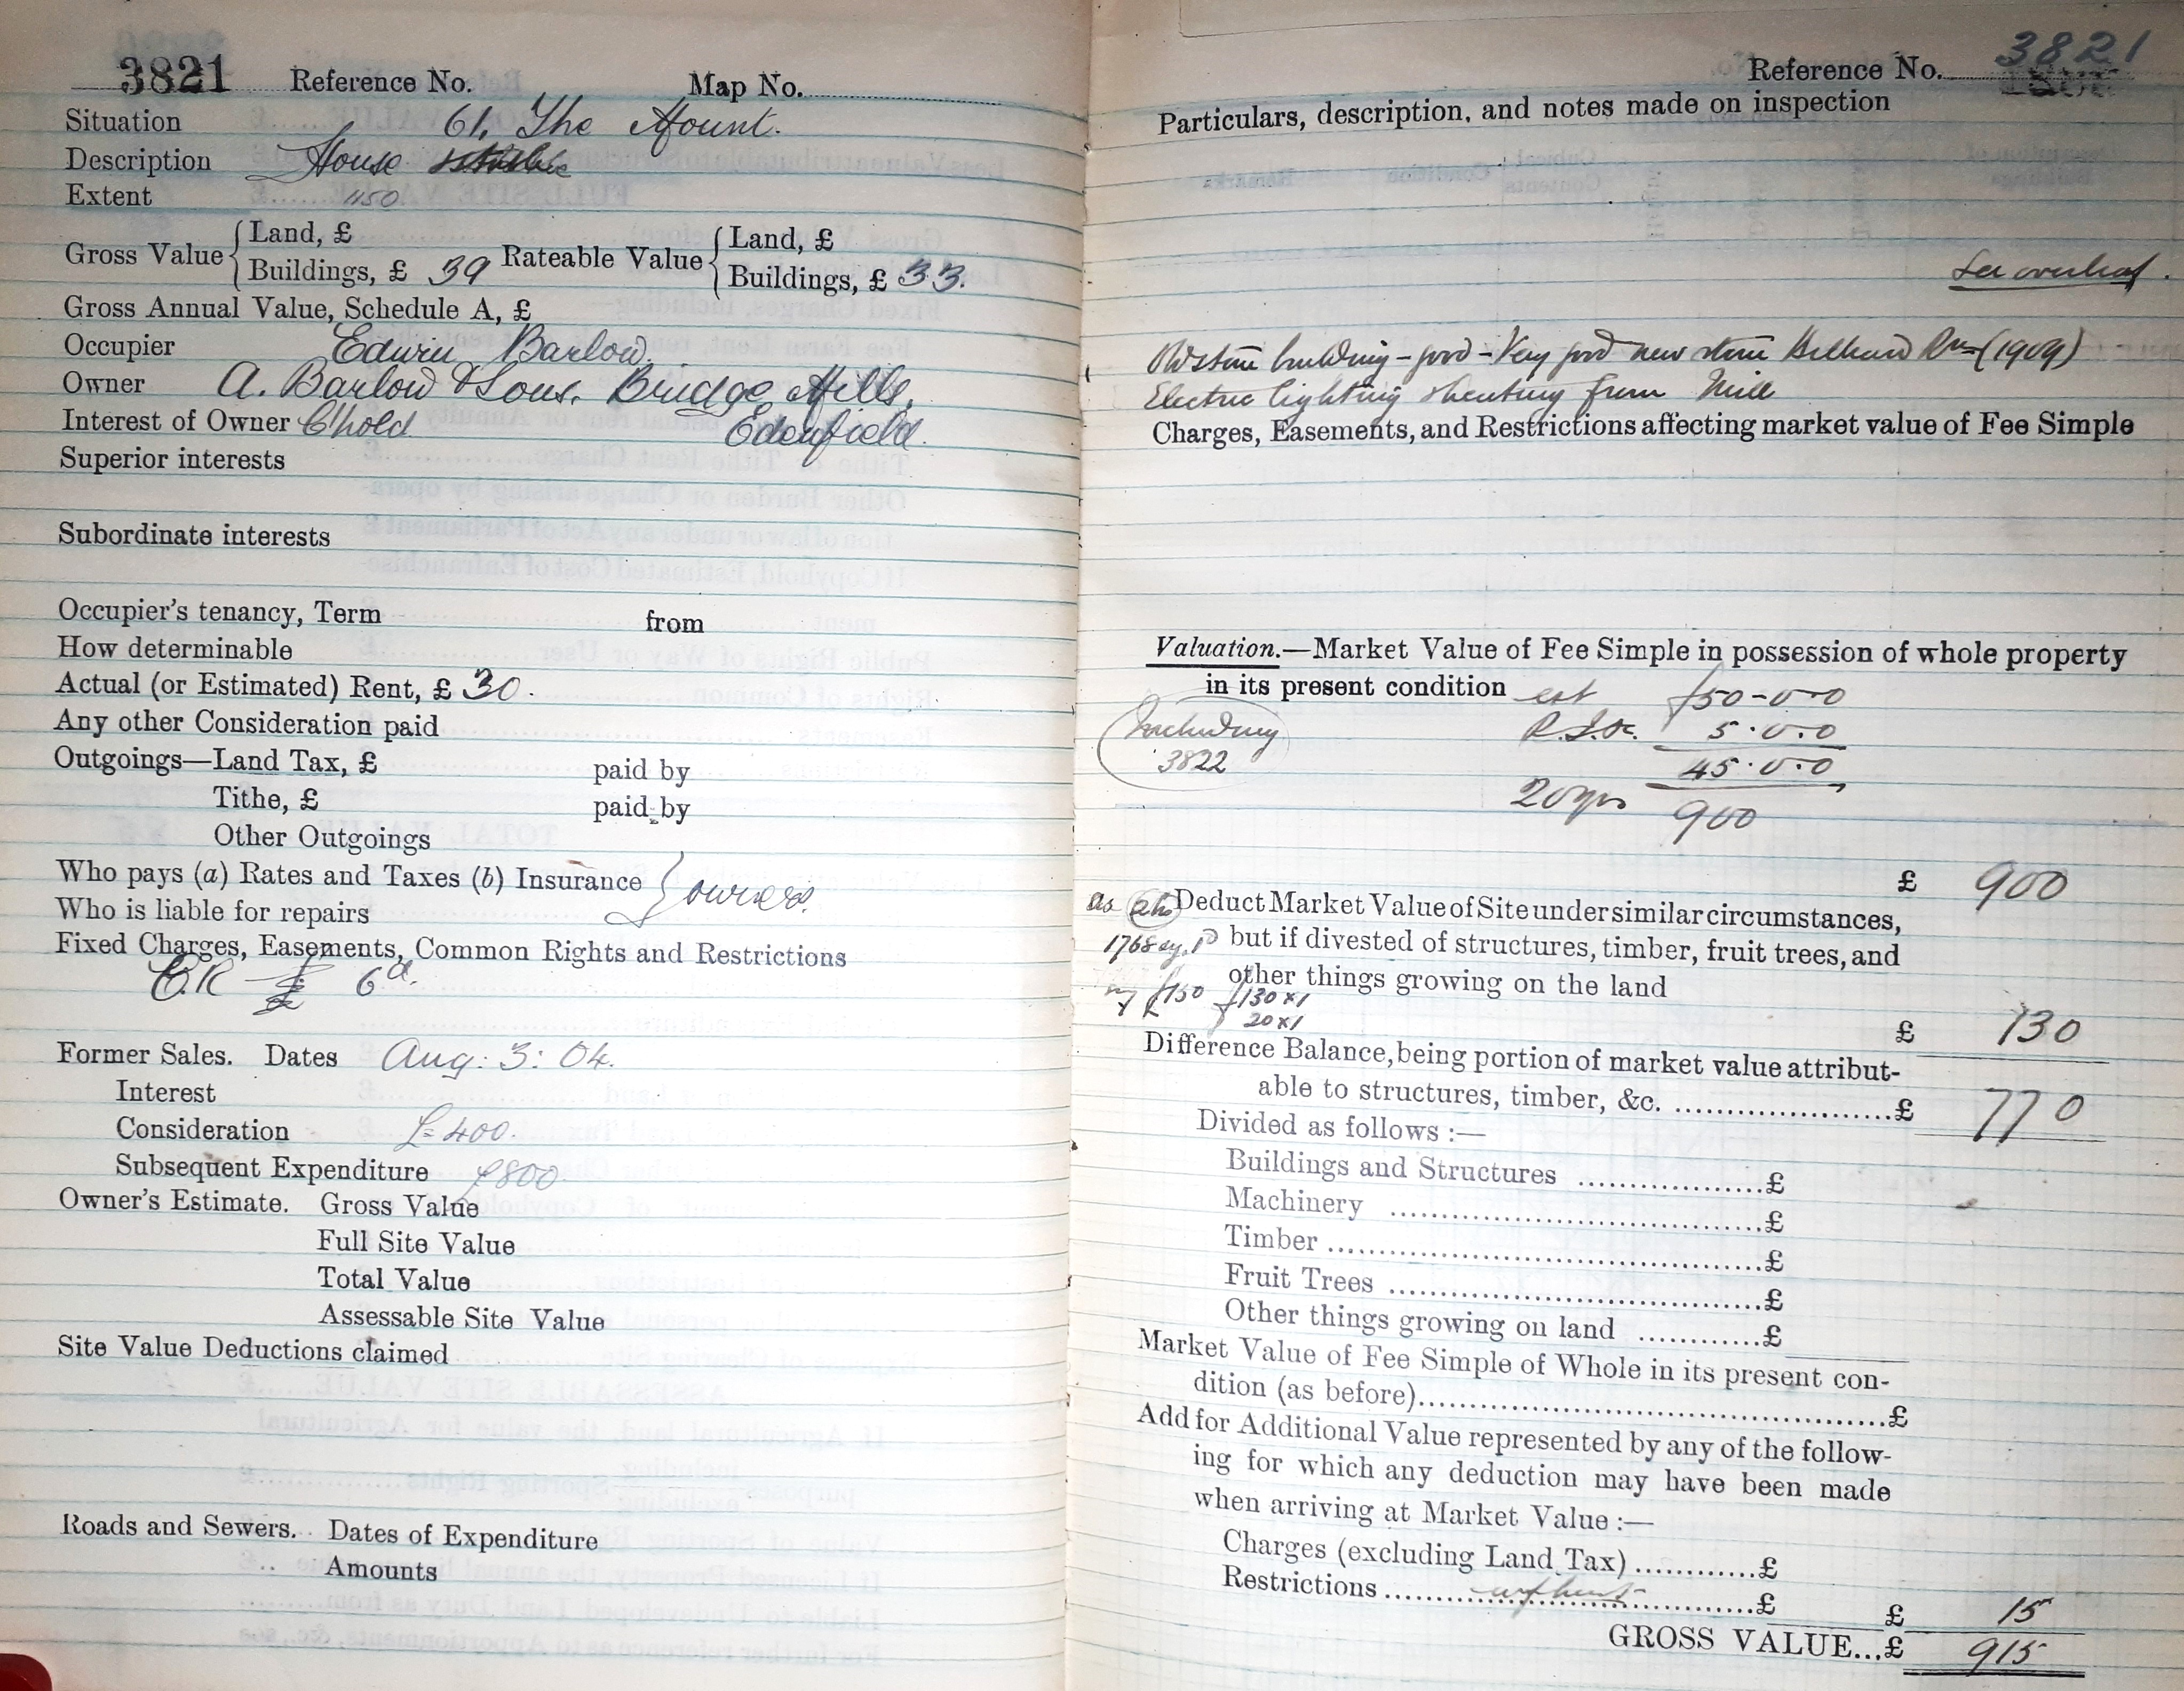 3821 Reference No. Map No.
Situation 61, The Mount.
Description House
Extent 1150
Gross Value { Land, £
Buildings, £ 39 Rateable Value { Land, £
Buildings, £ 33.
Gross Annual Value, Schedule A, £
Occupier Edwin Barlow.
Owner A. Barlow & Sons. Bridge Mills,
Interest of Owner C'hold Edenfield.
Superior interests
Subordinate interests
Occupier's tenancy, Term from
How determinable
Actual (or Estimated) Rent, £ 30.
Any other Consideration paid
Outgoings—Land Tax, £ paid by
Tithe, £ paid by
Other Outgoings
Who pays (a) Rates and Taxes (b) Insurance } owners.
Who is liable for repairs
Fixed Charges, Easements, Common Rights and Restrictions
C.R 6d.
Former Sales. Dates Aug: 3: 04.
Interest
Consideration £400.
Subsequent Expenditure £800
Owner's Estimate. Gross Value
Full Site Value
Total Value
Assessable Site Value
Site Value Deductions claimed
Roads and Sewers. Dates of Expenditure
Amounts
Reference No. 3821
Particulars, description, and notes made on inspection
See overleaf.
Old stone building - good - Very good new stone Billiard Rm (1909)
Electric lighting & heating from Mill
Charges, Easements, and Restrictions affecting market value of Fee Simple
Valuation.—Market Value of Fee Simple in possession of whole property
in its present condition est £50-0-0
Including 5.0.0
3822 45.0.0
20 yrs 900
£ 900
as Deduct Market Value of Site under similar circumstances,
1768 sq. but if divested of structures, timber, fruit trees, and
other things growing on the land
say £150 £130 x 1
20 x 1
£ 130
Difference Balance, being portion of market value attribut-
able to structures, timber, &c. ......................£ 770
Divided as follows :—
Buildings and Structures ...................£
Machinery ...................................£
Timber .........................................£
Fruit Trees ...................................£
Other things growing on land ............£
Market Value of Fee Simple of Whole in its present con-
dition (as before)...............................................£
Add for Additional Value represented by any of the follow-
ing for which any deduction may have been made
when arriving at Market Value :—
Charges (excluding Land Tax) ............£
Restrictions ...................................£ £ 15
GROSS VALUE...£ 915